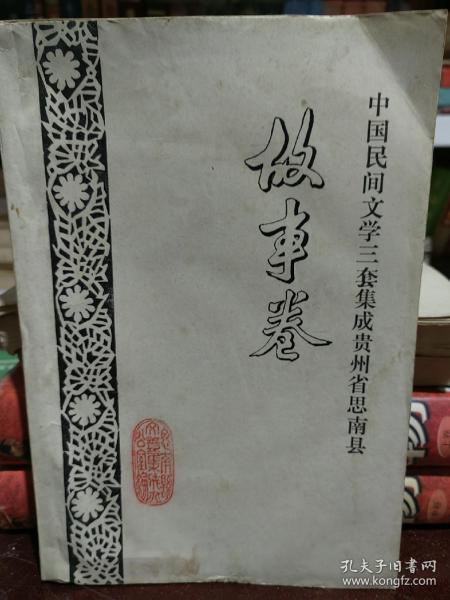 中国民间文学三套集成贵州省思南县
故事卷
孔夫子旧书网
www.kongfz.com